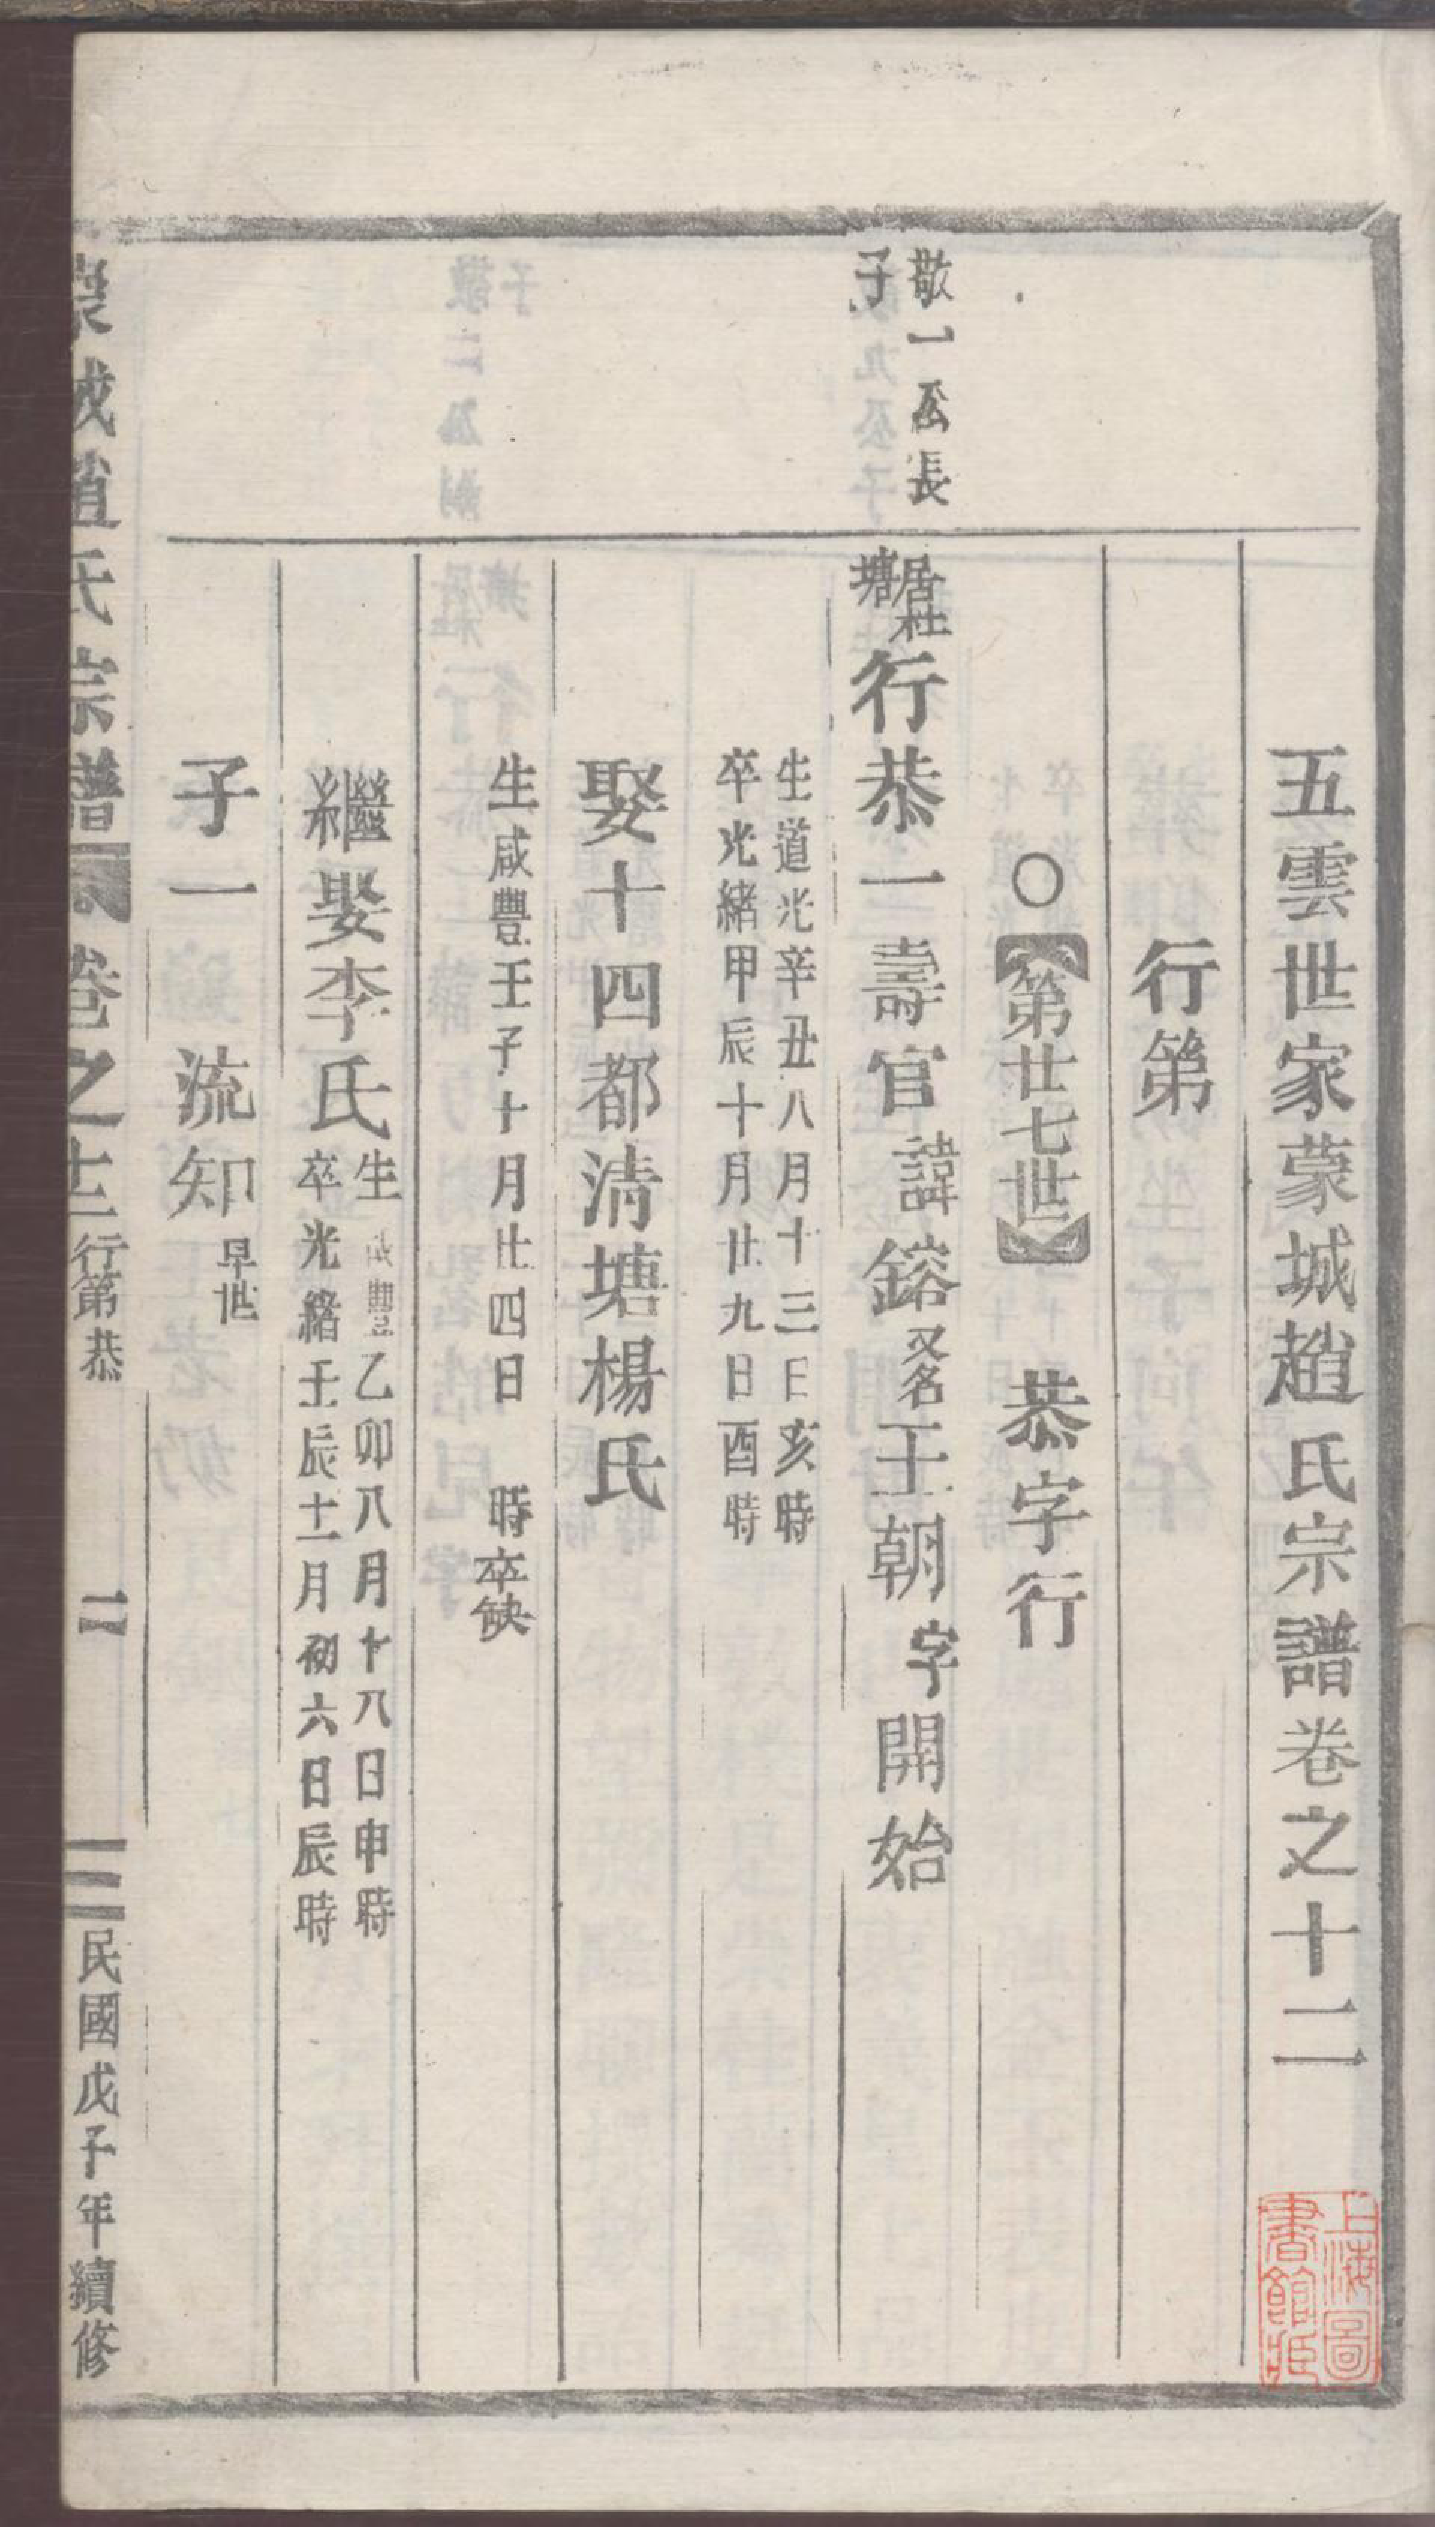 五雲世家蒙城趙氏宗譜卷之十二
行第
○第廿七世 恭字行
敬一公長
子
居社
塘
行恭一壽官諱鎔又名王朝字開始
生道光辛丑八月十三日亥時
卒光緒甲辰十月廿九日酉時
娶十四都清塘楊氏
生咸豐壬子十月廿四日 時卒缺
繼娶李氏
生咸豐乙卯八月十八日申時
卒光緒壬辰十一月初六日辰時
子一 流知早世
蒙城趙氏宗譜 卷之十二 行第恭 一 民國戊子年續修
上海圖
書館